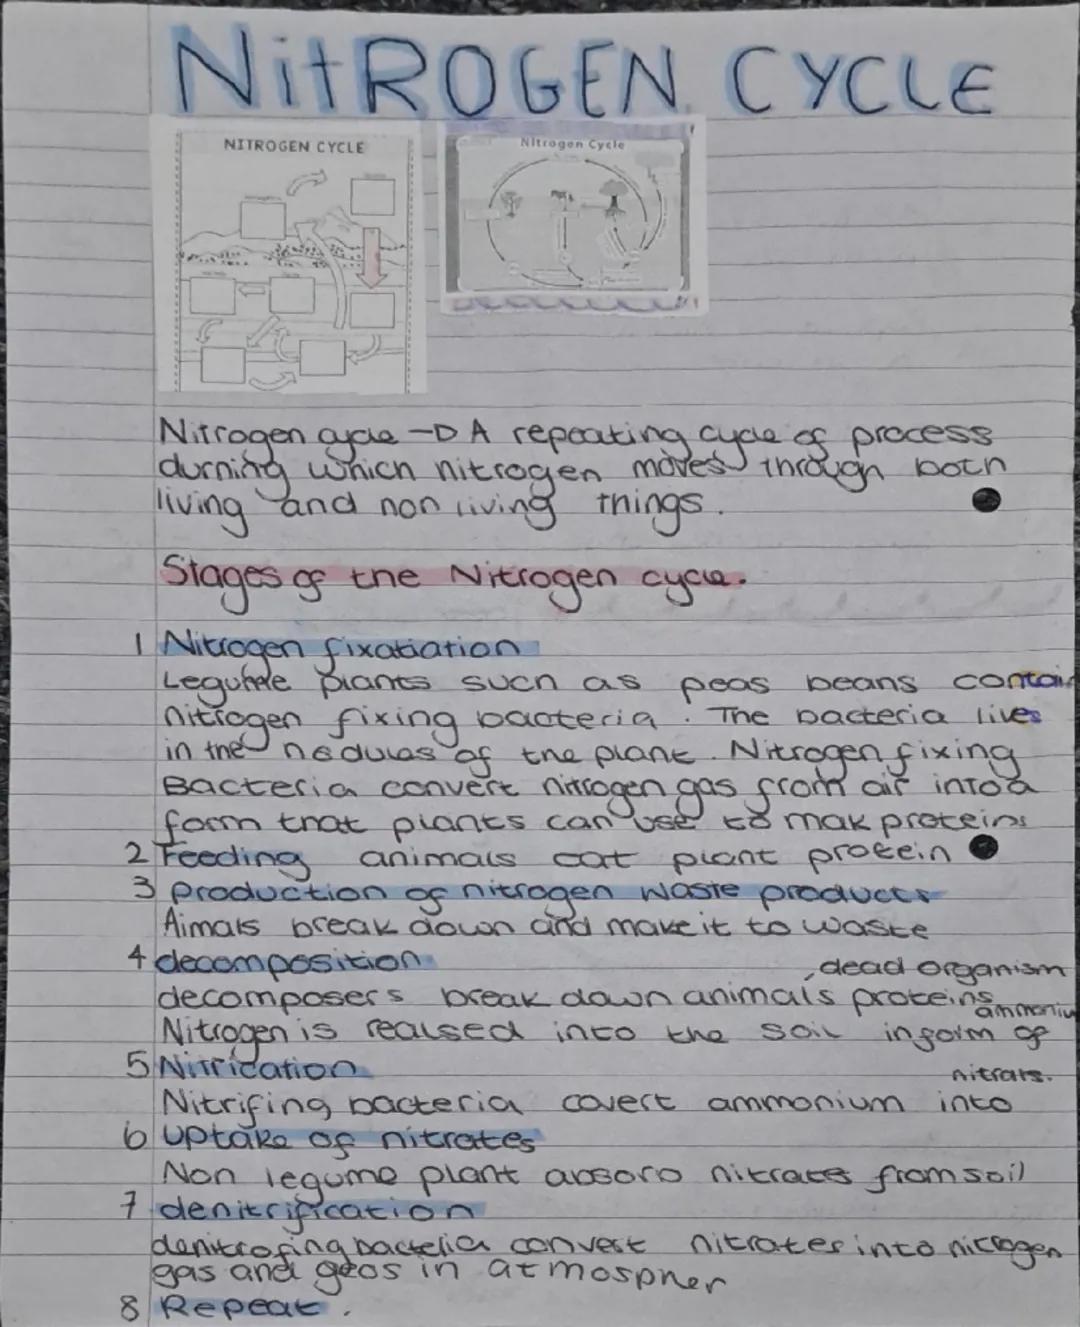 NitROGEN CYCLE
NITROGEN CYCLE
Nitrogen Cycle
Nitrogen cycle → A repeating cycle of process
durning which nitrogen moves through both
living and non living things.
Stages of the Nitrogen cycle.
1 Nitrogen fixatiation
Legume plants such as peas beans contain
nitrogen fixing bacteria. The bacteria lives
in the nodulas of the plant. Nitrogen fixing
Bacteria convert nitrogen gas from air into a
form that plants can use to mak proteins
2 Feeding animals eat plant protein
3 production of nitrogen waste products
Aimals break down and make it to waste
4 decomposition
, dead organism
decomposers break down animals proteins
ammoniu
Nitrogen is realsed into the soil in form of
5 Nitrication
nitrats.
Nitrifing bacteria covert ammonium into
6 uptake of nitrates
Non legume plant absorb nitrates from soil
7 denitrification
denitrofing bacteria convert nitrates into nitrogen
gas and goes in atmospher
8 Repeat.